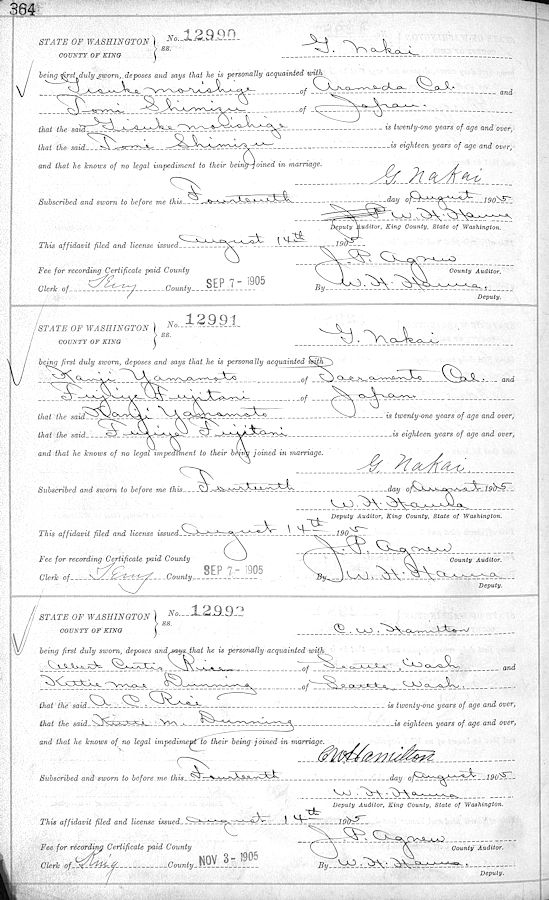 364
STATE OF WASHINGTON } ss. No. 12990 G. Nakai
COUNTY OF KING
being first duly sworn, deposes and says that he is personally acquainted with
Gisuke Morishige of Arameda Cal. and
Tomi Shimizu of Japan.
that the said Gisuke Morishige is twenty-one years of age and over,
that the said Tomi Shimizu is eighteen years of age and over,
and that he knows of no legal impediment to their being joined in marriage.
G. Nakai
Subscribed and sworn to before me this Fourteenth day of August 1905
J. P. W. H. Hanna
Deputy Auditor, King County, State of Washington.
This affidavit filed and license issued August 14th 1905
J. P. Agnew
Fee for recording Certificate paid County County Auditor.
Clerk of King County SEP 7 - 1905 By W. H. Hanna,
Deputy.
STATE OF WASHINGTON } ss. No. 12991 G. Nakai
COUNTY OF KING
being first duly sworn, deposes and says that he is personally acquainted with
Kanji Yamamoto of Sacramento Cal. and
Fujiye Fujitani of Japan
that the said Kanji Yamamoto is twenty-one years of age and over,
that the said Fujiye Fujitani is eighteen years of age and over,
and that he knows of no legal impediment to their being joined in marriage.
G. Nakai.
Subscribed and sworn to before me this Fourteenth day of August 1905
W. H. Hanna
Deputy Auditor, King County, State of Washington.
This affidavit filed and license issued August 14th 1905
J. P. Agnew
Fee for recording Certificate paid County County Auditor.
Clerk of King County SEP 7 - 1905 By W. H. Hanna
Deputy.
STATE OF WASHINGTON } ss. No. 12992 C. W. Hamilton
COUNTY OF KING
being first duly sworn, deposes and says that he is personally acquainted with
Albert Curtis Rice of Seattle, Wash and
Kittie Mae Dunning of Seattle, Wash.
that the said A. C. Rice is twenty-one years of age and over,
that the said Kittie M. Dunning is eighteen years of age and over,
and that he knows of no legal impediment to their being joined in marriage.
CW Hamilton
Subscribed and sworn to before me this Fourteenth day of August 1905
W. H. Hanna
Deputy Auditor, King County, State of Washington.
This affidavit filed and license issued August 14th 1905
J. P. Agnew
Fee for recording Certificate paid County County Auditor.
Clerk of King County NOV 3 - 1905 By W. H. Hanna.
Deputy.